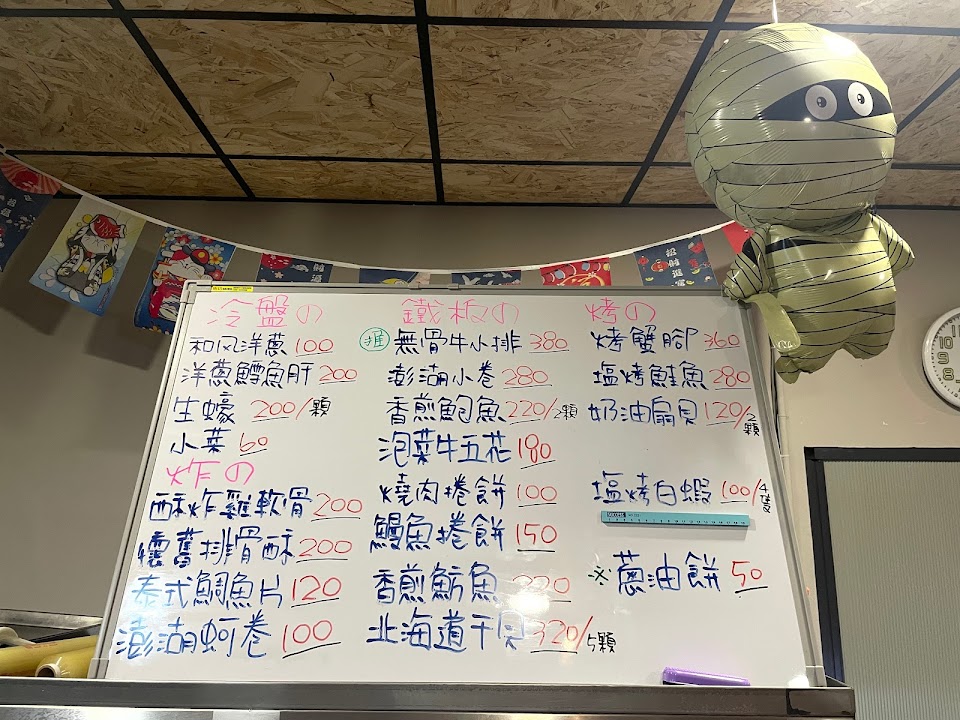 冷盤の
和风洋蔥 100
洋蔥鱈魚肝 200
生蠔 200/顆
小菜 60
炸の
酥炸雞軟骨 200
懷舊排骨酥 200
泰式鯛魚片 120
澎湖蚵卷 100
鐵板の
推 無骨牛小排 380
澎湖小卷 280
香煎鮑魚 220/2顆
泡菜牛五花 180
燒肉捲餅 100
鰻魚捲餅 150
香煎魴魚 220
北海道干貝 320/5顆
烤の
烤蟹腳 360
塩烤鮭魚 280
奶油扇貝 120/2顆
塩烤白蝦 100/4隻
蔥油餅 50